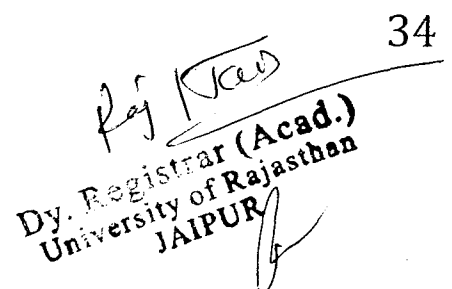 34
Raj
Dy. Registrar (Acad.)
University of Rajasthan
JAIPUR